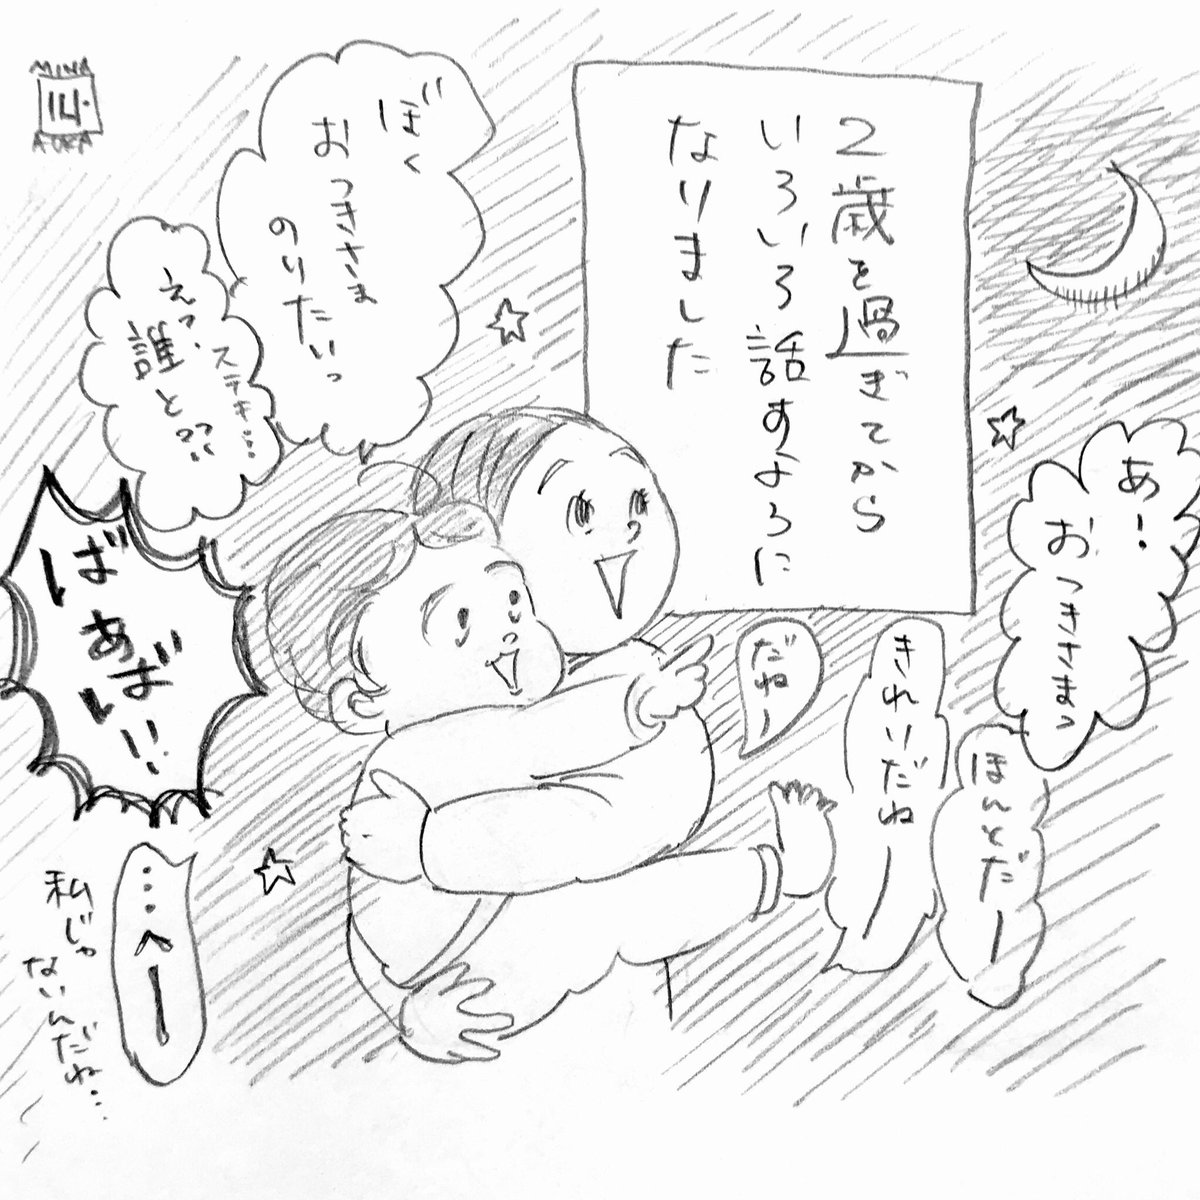 2歳を過ぎてから
いろいろ話すように
なりました
あ!
おつきさまっ
ほんとだー
きれいだねー
だねー
ぼく
おつきさま
のりたいっ
ステキ…
えっ、
誰と??
ばあば!!
…へー
私じゃ
ないんだね…
14.